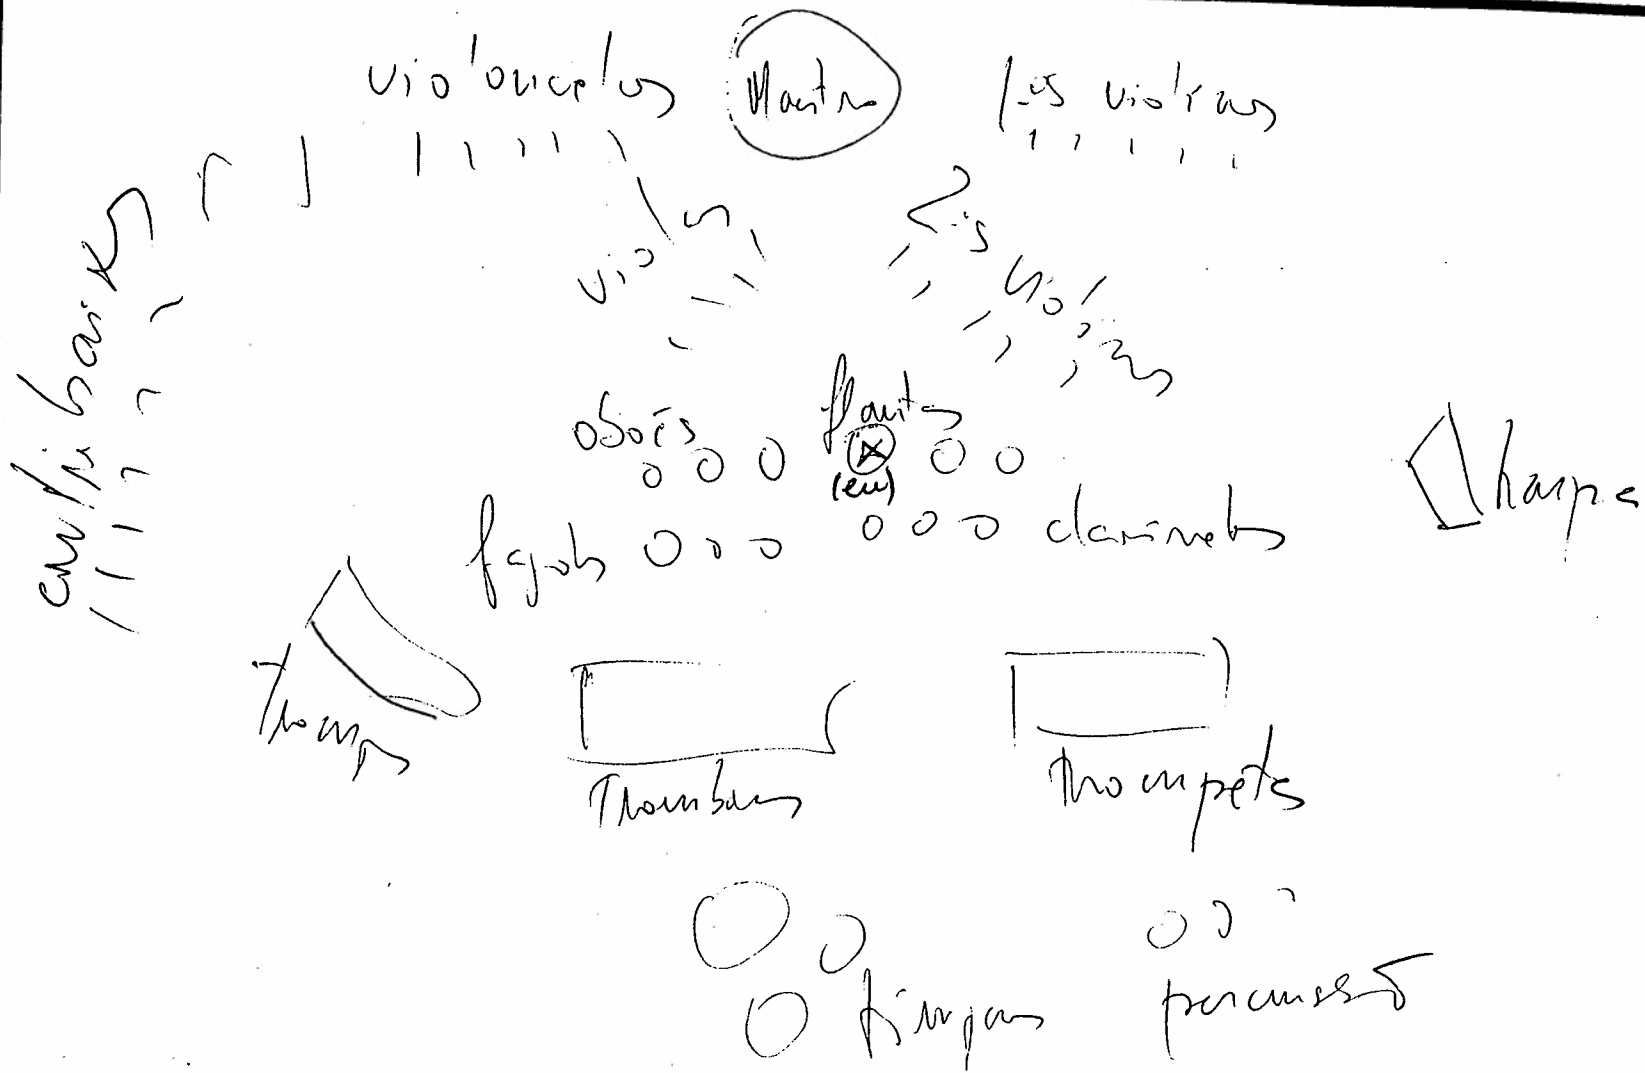 violoncelos
Maestro
1.os violinos
contrabaixos
violas
2.os violinos
oboés
flautas
(eu)
harpa
fagotes
clarinetes
Trompas
Trombones
trompetes
tímpanos
percussão